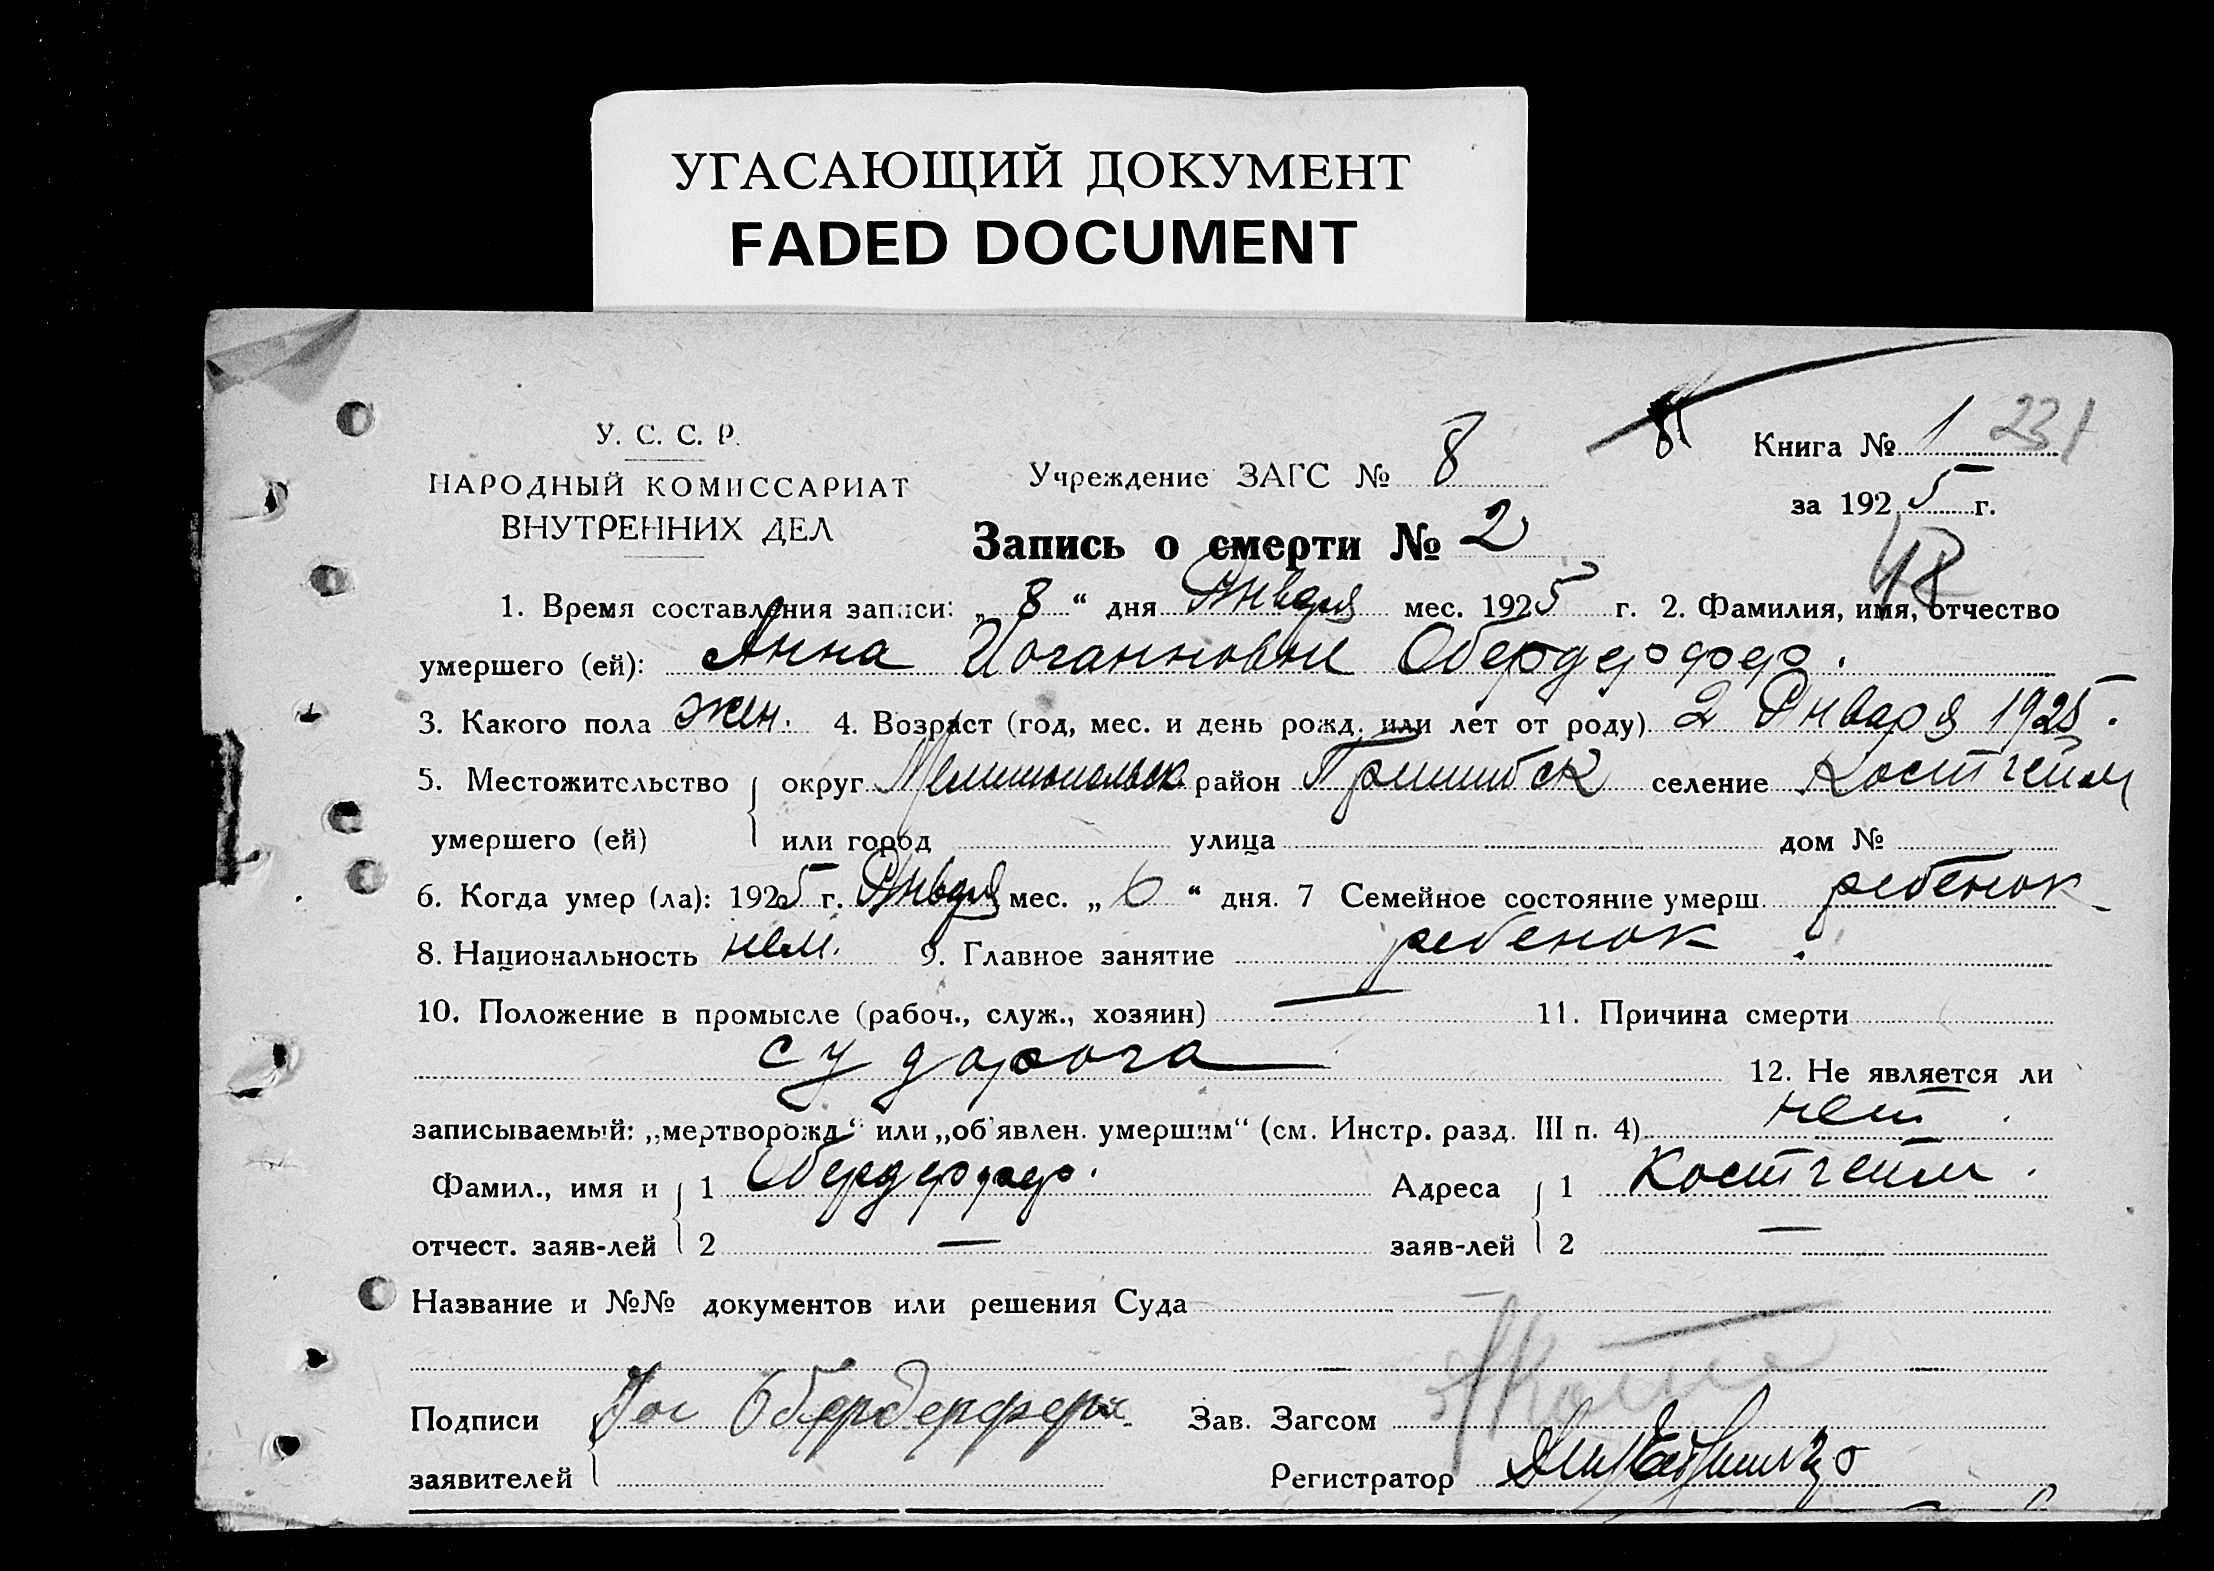 УГАСАЮЩИЙ ДОКУМЕНТ
FADED DOCUMENT
У. С. С. Р.
НАРОДНЫЙ КОМИССАРИАТ
ВНУТРЕННИХ ДЕЛ
Учреждение ЗАГС № 8
81
Книга № 1 231
за 1925 г.
Запись о смерти № 2
48
1. Время составления записи: „ 8 “ дня Января мес. 1925 г. 2. Фамилия, имя, отчество
умершего (ей): Анна Иоганновне Обердерфер.
3. Какого пола жен. 4. Возраст (год, мес. и день рожд. или лет от роду) 2 Января 1925.
5. Местожительство округ Мелитопольск район Пришибск селение Костгейм
умершего (ей) или город улица дом №
6. Когда умер (ла): 1925 г. Января мес. „ 6 “ дня. 7 Семейное состояние умерш. ребенок
8. Национальность нем. 9. Главное занятие ребенок.
10. Положение в промысле (рабоч., служ., хозяин) — 11. Причина смерти
судорога 12. Не является ли
записываемый: „мертворожд“ или „об'явлен. умершим“ (см. Инстр. разд. III п. 4) нет.
Фамил., имя и 1 Обердерфер. Адреса 1 Костгейм.
отчест. заяв-лей 2 — заяв-лей 2 —
Название и №№ документов или решения Суда —
Подписи Иог Обердерфер Зав. Загсом
заявителей Регистратор